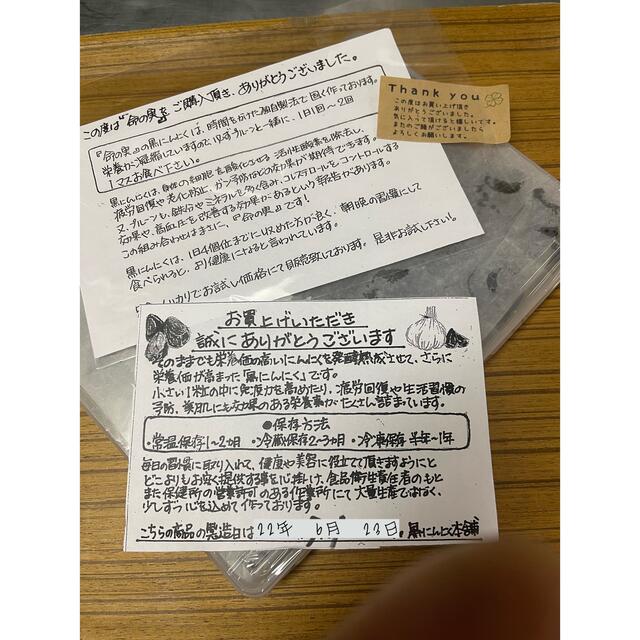 この度は『命の実』をご購入頂き、ありがとうございました。
『命の実』の黒にんにくは、時間をかけた独自製法で固く作っております。
栄養が凝縮していますので、必ずプルーンと一緒に、1日1回〜2回
1マスお食べ下さい。
黒にんにくは、身体の細胞を酸化させる活性酸素を除去し、
疲労回復や老化防止、ガン予防などの効果が期待できます。
又、プルーンも、鉄分やミネラルを多く含み、コレステロールをコントロールする
効果や、高血圧を改善する効果があるという報告があります。
この組み合わせはまさに、『命の実』です!
黒にんにくは、1日4個位までに止めた方が良く、朝晩の習慣にして
食べられると、より健康になると言われています。
お試し価格にて販売致しております。是非お試し下さい。
Thank you
この度はお買い上げ頂き
ありがとうございました。
気に入って頂けると嬉しいです。
またのご縁がございましたら
よろしくお願いします。
お買上げいただき
誠にありがとうございます
そのままでも栄養価の高いにんにくを発酵熟成させて、さらに
栄養価が高まった「黒にんにく」です。
小さい1粒の中に免疫力を高めたり、疲労回復や生活習慣の
予防、美肌にも効果のある栄養素がたくさん詰まっています。
●保存方法
・常温保存1〜2カ月 ・冷蔵保存2〜3カ月 ・冷凍保存 半年〜1年
毎日の習慣に取り入れて、健康や美容に役立てて頂きますようにと
どこよりもお安く提供する事を心掛け、食品衛生責任者のもと
また保健所の営業許可のある作業所にて大量生産ではなく、
少しずつ心を込めて作っております。
こちらの商品の製造日は22年 6月 23日。黒にんにく本舗